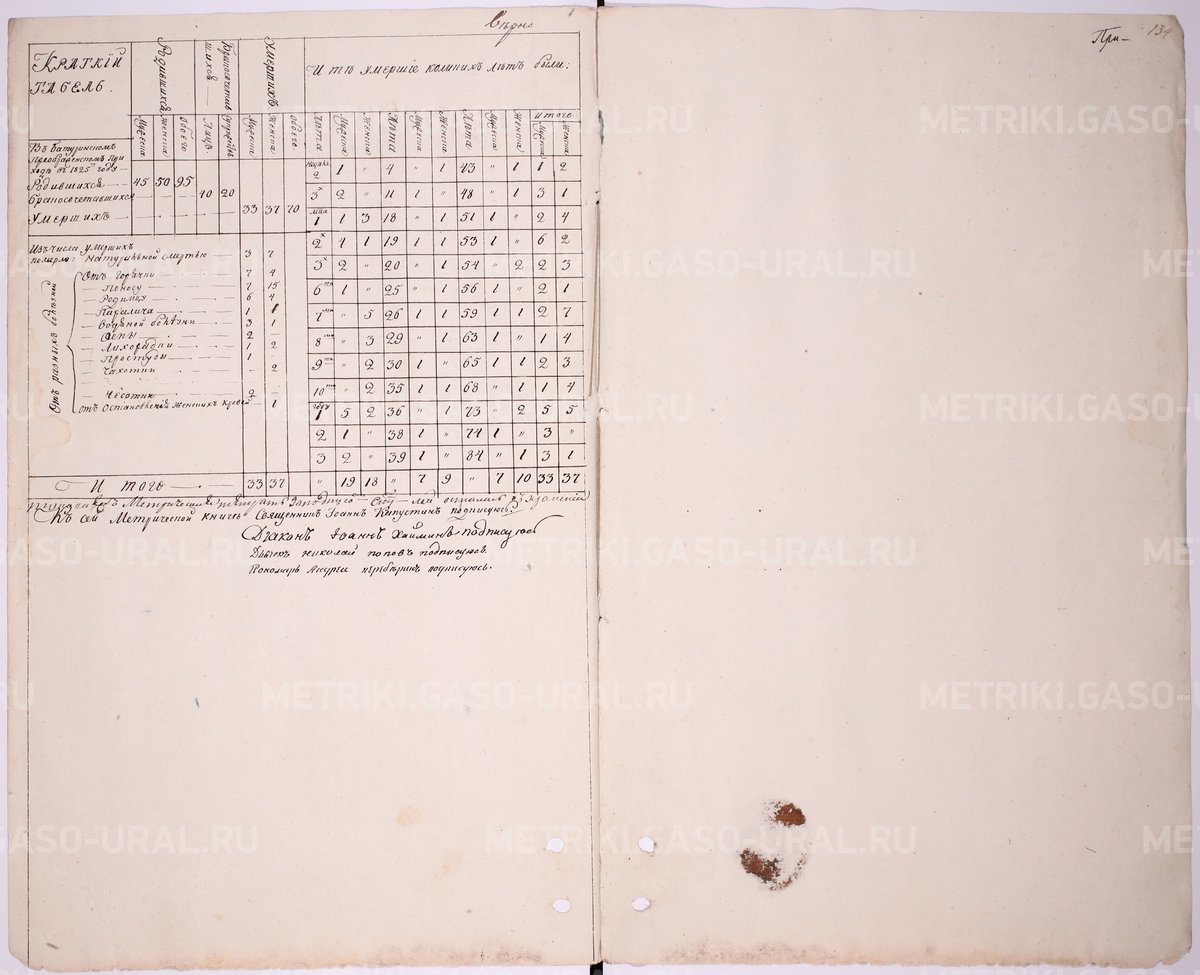 вѣрно
При-
134
КРАТКІЙ ТАБЕЛЬ.
Родившихся
Бракосочетавшихся
Умершихъ
И тѣ умершіе колинихъ лѣтъ были:
Мужеска Женска Обоего
Мужеска Женска обоего
Лѣта Мужеска Женска Лѣта Мужеска Женска Лѣта Мужеска Женска Итого Мужеска Женска
Въ Батуринскомъ
Преображенскомъ При
ходѣ въ 1825 годѣ —
Родившихся — 45 50 95
бракосочетавшихся — 10 20
Умершихъ — 33 37 70
2 1 " 4 " 1 43 " 1 1 2
3 2 " 11 1 " 48 " 1 3 1
1 1 3 18 " 1 51 1 " 2 4
2 4 1 19 1 " 53 1 " 6 2
3 2 " 20 " 1 54 " 2 2 3
6 1 " 25 " 1 56 1 " 2 1
7 " 5 26 1 1 59 1 1 2 7
8 " 3 29 " 1 63 1 " 1 4
9 " 2 30 1 " 65 1 1 2 3
10 " 2 35 1 1 68 " 1 1 4
1 5 2 36 " 1 73 " 2 5 5
2 1 " 38 1 " 74 1 " 3 "
3 2 " 39 1 " 84 " 1 3 1
Изъ числа умершихъ
померло: Натуральной смертью — 3 7
Отъ разныхъ болѣзней
Отъ горячки — 7 4
— Поносу — 7 15
— Родимца — 6 4
— Паралича — 1 1
— Водяной болѣзни — 3 1
— Оспы — 2 —
— Лихорадки — 1 2
— Простуды — 1 —
— Чахотки — 2
— Чесотки — 2 —
отъ Остановленія женскихъ кровей — 1
Итого — 33 37 " 19 18 " 7 9 " 7 10 33 37
Къ сей Метрической книгѣ Священникъ Іоаннъ Капустинъ подписуюсь
Дьяконъ Іоаннъ подписуюсь
Дьячекъ Николай Поповъ подписуюсь.
Пономарь Андрей подписуюсь.
METRIKI.GASO-URAL.RU